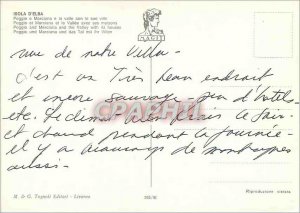 ISOLA D'ELBA
Poggio e Marciana e la valle con le sue ville
Poggio et Marciana et la Vallée avec ses maisons
Poggio and Marciana and the Valley with its houses
Poggio und Marciana und das Tal mit den Villen
vue de notre Villa -
c'est un Très beau endroit
et encore sauvage - peu d'hotels
etc. le climat bien frais le soir
et chaud pendant la journée -
il y a beaucoup de montagnes
aussi -
CPAPHIL
M. & G. Tognoli Editori - Livorno
Riproduzione vietata